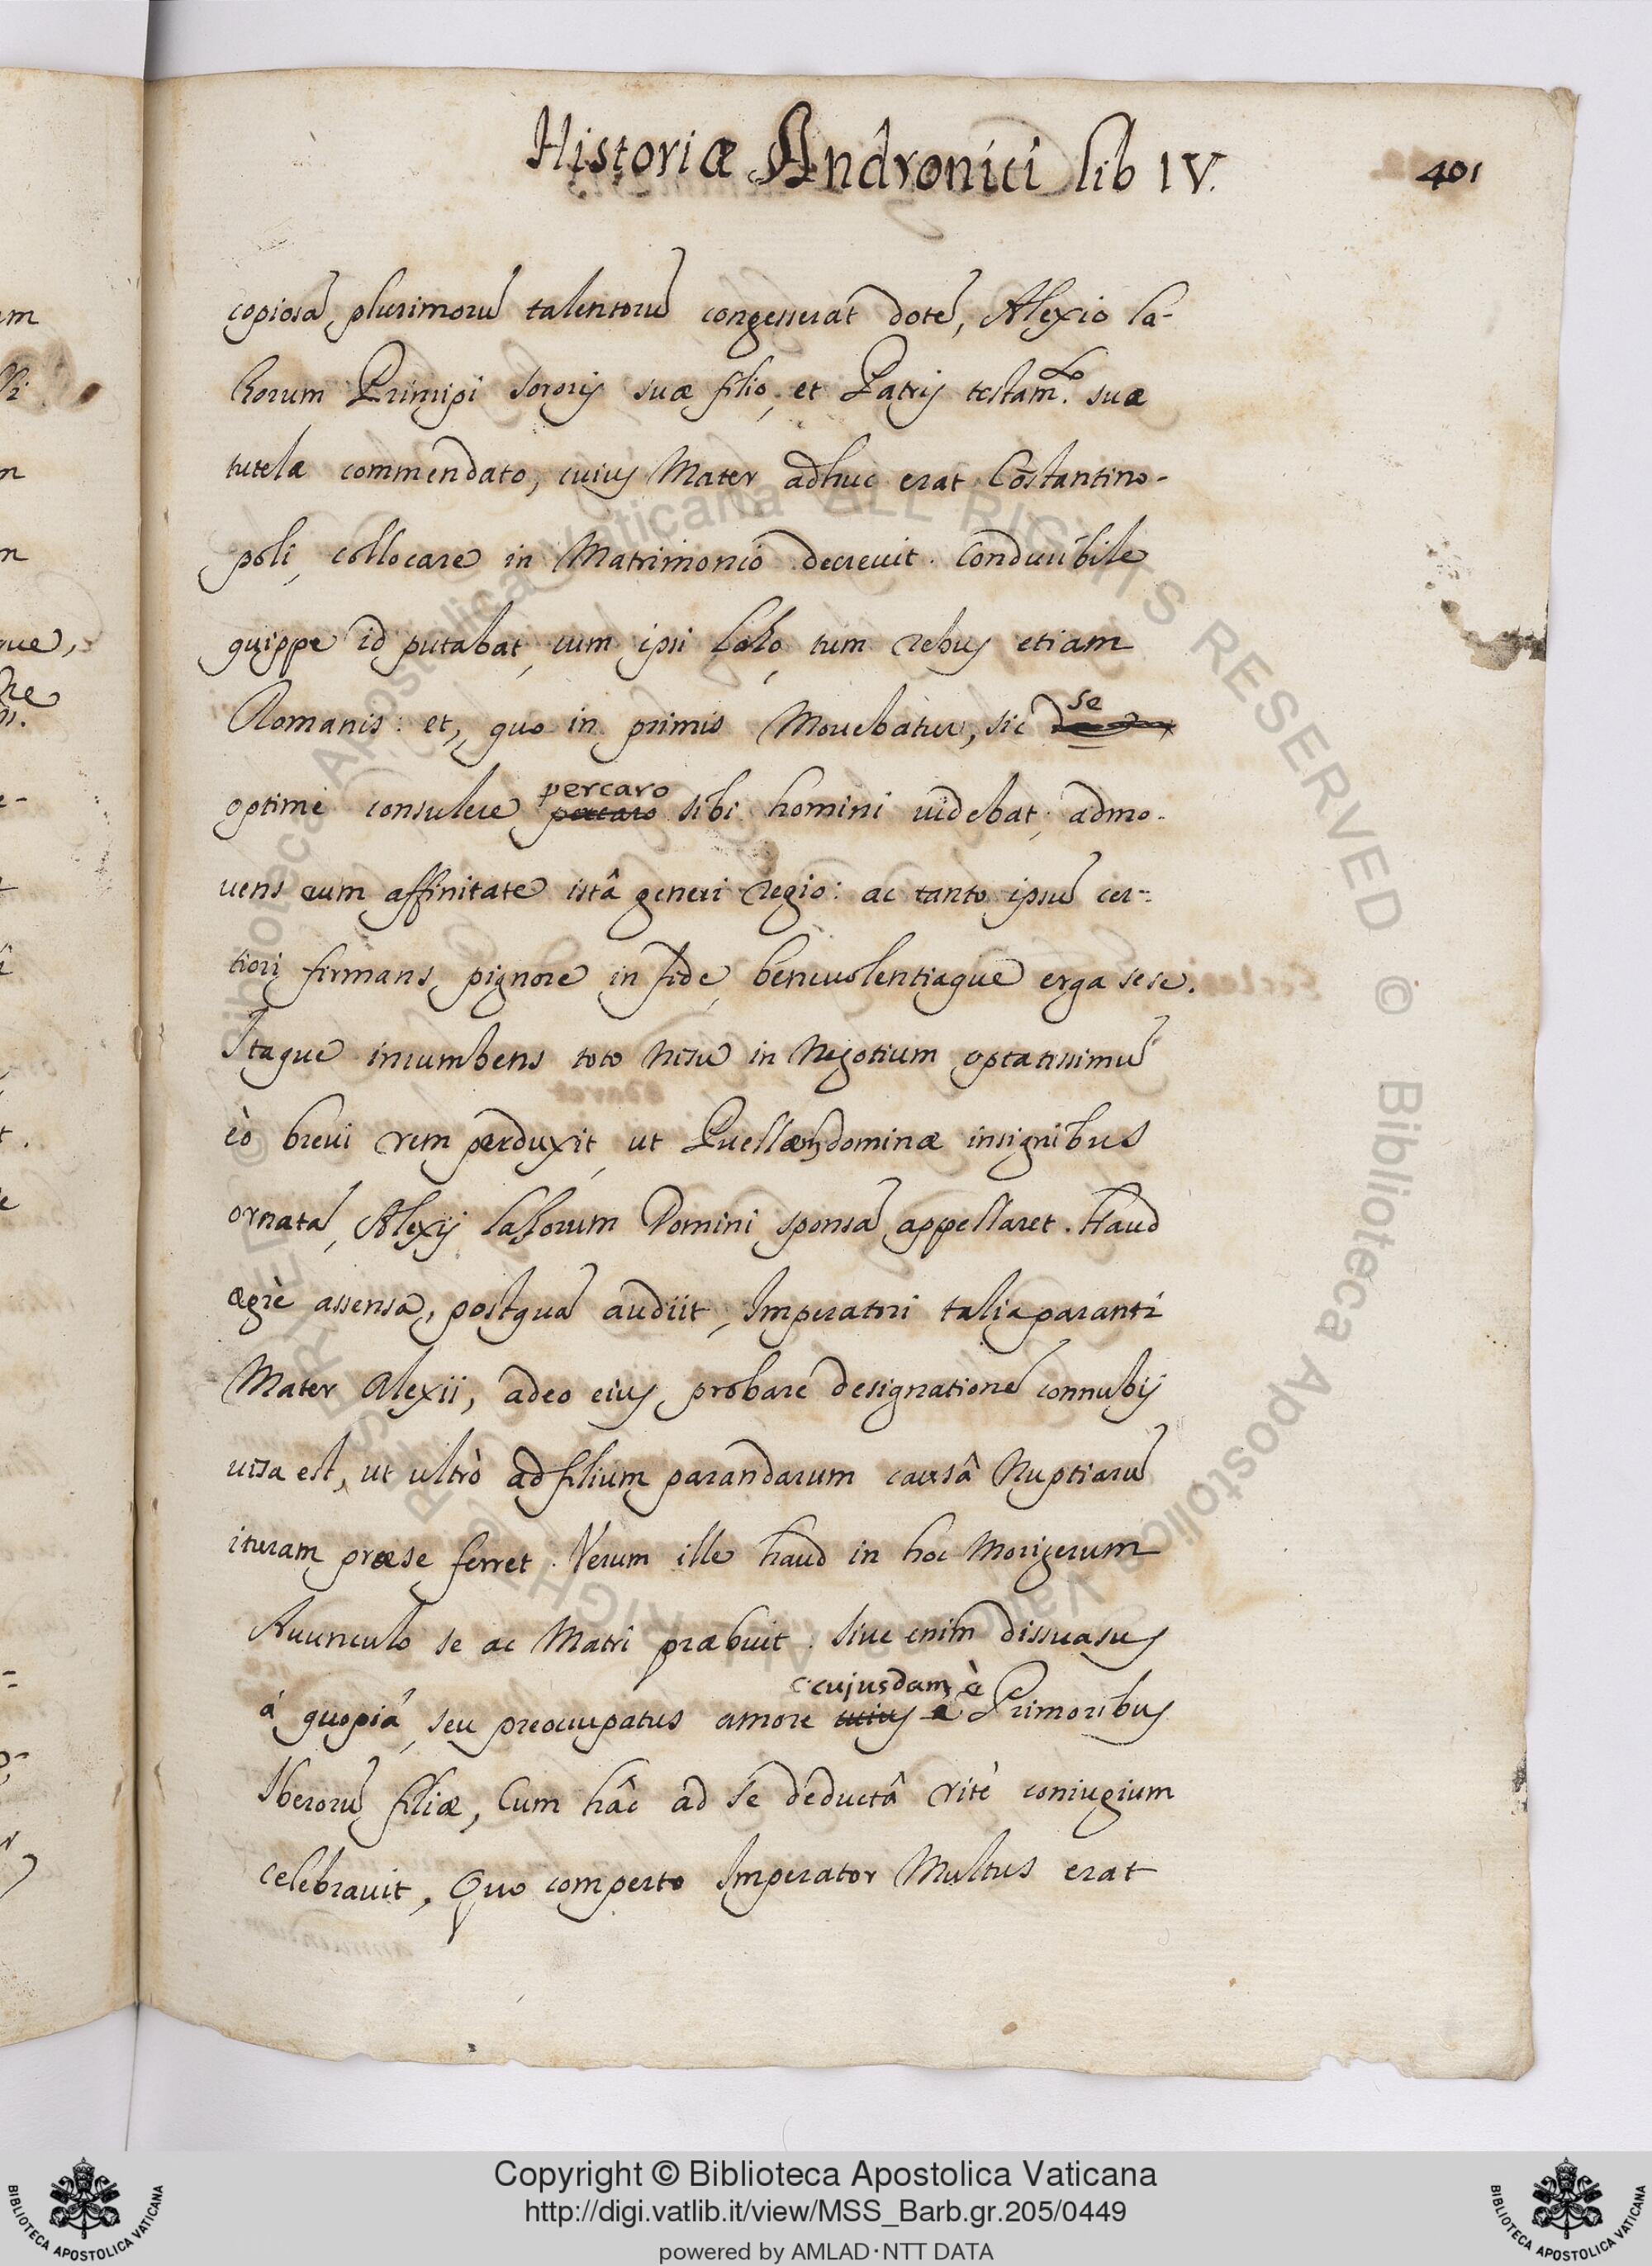 Historiæ Andronici lib IV.
401
copiosā plurimorū talentorū congesserat dotē, Alexio la-
horum Principi sororis suæ filio, et Patris testam.to suæ
tutelæ commendato, cuius Mater adhuc erat Cōstantino-
poli, collocare in Matrimonio decreuit. Conducibile
quippe id putabat, cum ipsi tum rebus etiam
Romanis: et, quo in primis Mouebatur, sic se
optimè consulere percaro sibi homini uidebat, admo-
uens eum affinitate istâ generi regio: ac tanto ipsū cer-
tiori firmans pignore in fide, beneuolentiaque erga sese.
Itaque incumbens toto nisu in Negotium optatissimū
eò breui rem perduxit, ut Puellam dominæ insignibus
ornatā, Alexij Lahorum Domini sponsā appellaret. Haud
ægrè assensa, postquā audiit, Imperatori talia paranti
Mater Alexii, adeo eius probare designationē connubij
uisa est, ut ultrò ad filium parandarum causâ Nuptiarū
ituram præse ferret. Verum ille haud in hoc Morigerum
Auunculo se ac Matri præbuit. Siue enim dissuasus
à quopiā, seu preocupatus amore cuiusdam è Primoribus
cujusdam è
Iberorū filiæ, Cum hâc ad se deductâ ritè coniugium
celebrauit, Quo comperto Imperator Multus erat
Copyright © Biblioteca Apostolica Vaticana
http://digi.vatlib.it/view/MSS_Barb.gr.205/0449
powered by AMLAD·NTT DATA
BIBLIOTECA APOSTOLICA VATICANA
BIBLIOTECA APOSTOLICA VATICANA
Biblioteca Apostolica Vaticana ALL RIGHTS RESERVED ©